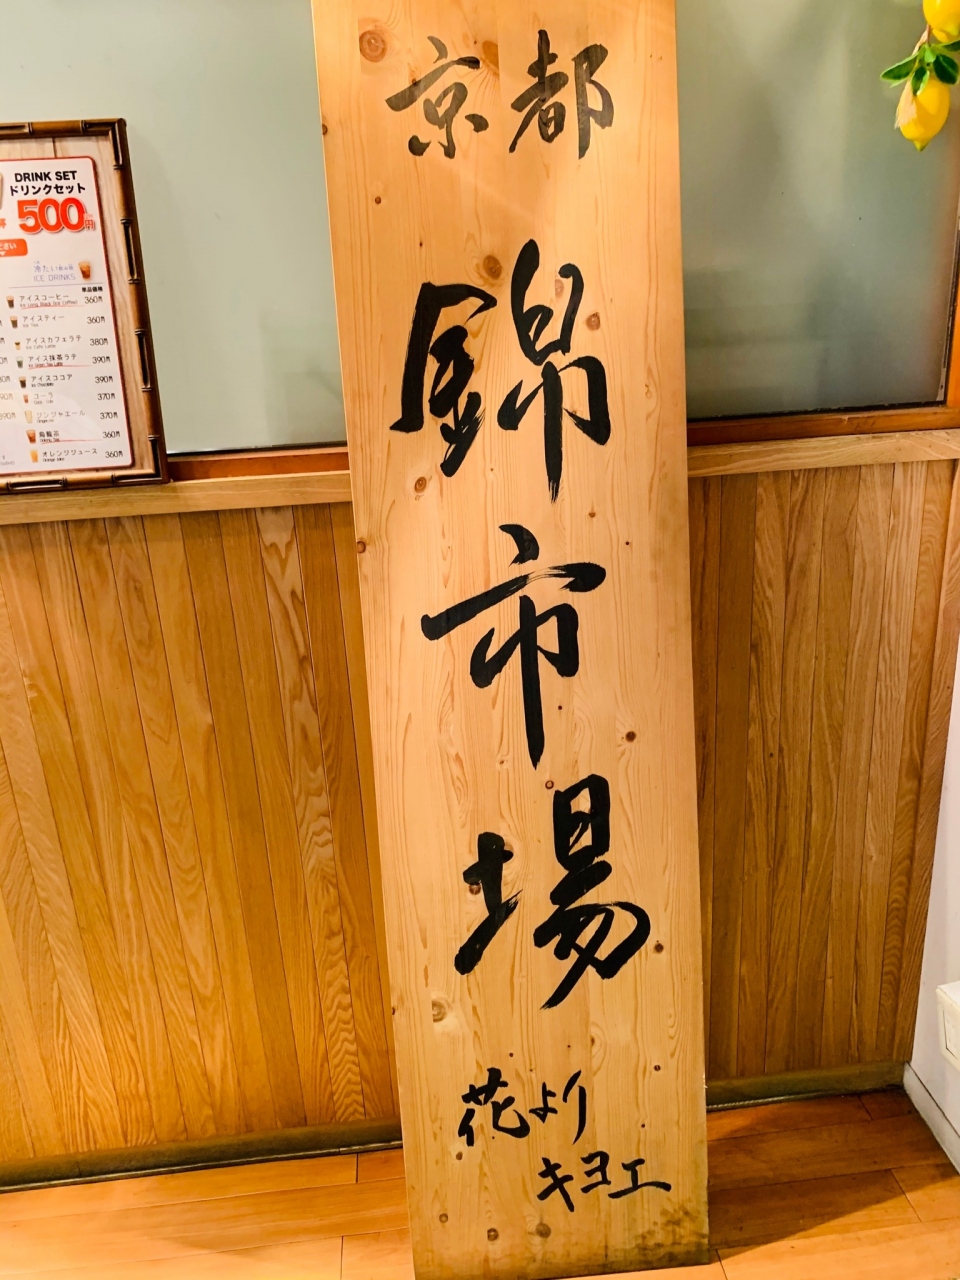 京都
錦市場
花より
キヨエ
DRINK SET
ドリンクセット
500円
冷たい飲み物
ICE DRINKS
単品価格
アイスコーヒー 360円
アイスティー 360円
Ice Tea
アイスカフェラテ 380円
Ice Cafe Latte
アイス抹茶ラテ 390円
アイスココア 390円
Ice Chocolate
コーラ 370円
ジンジャエール 370円
烏龍茶 360円
Oolong Tea
オレンジジュース 360円